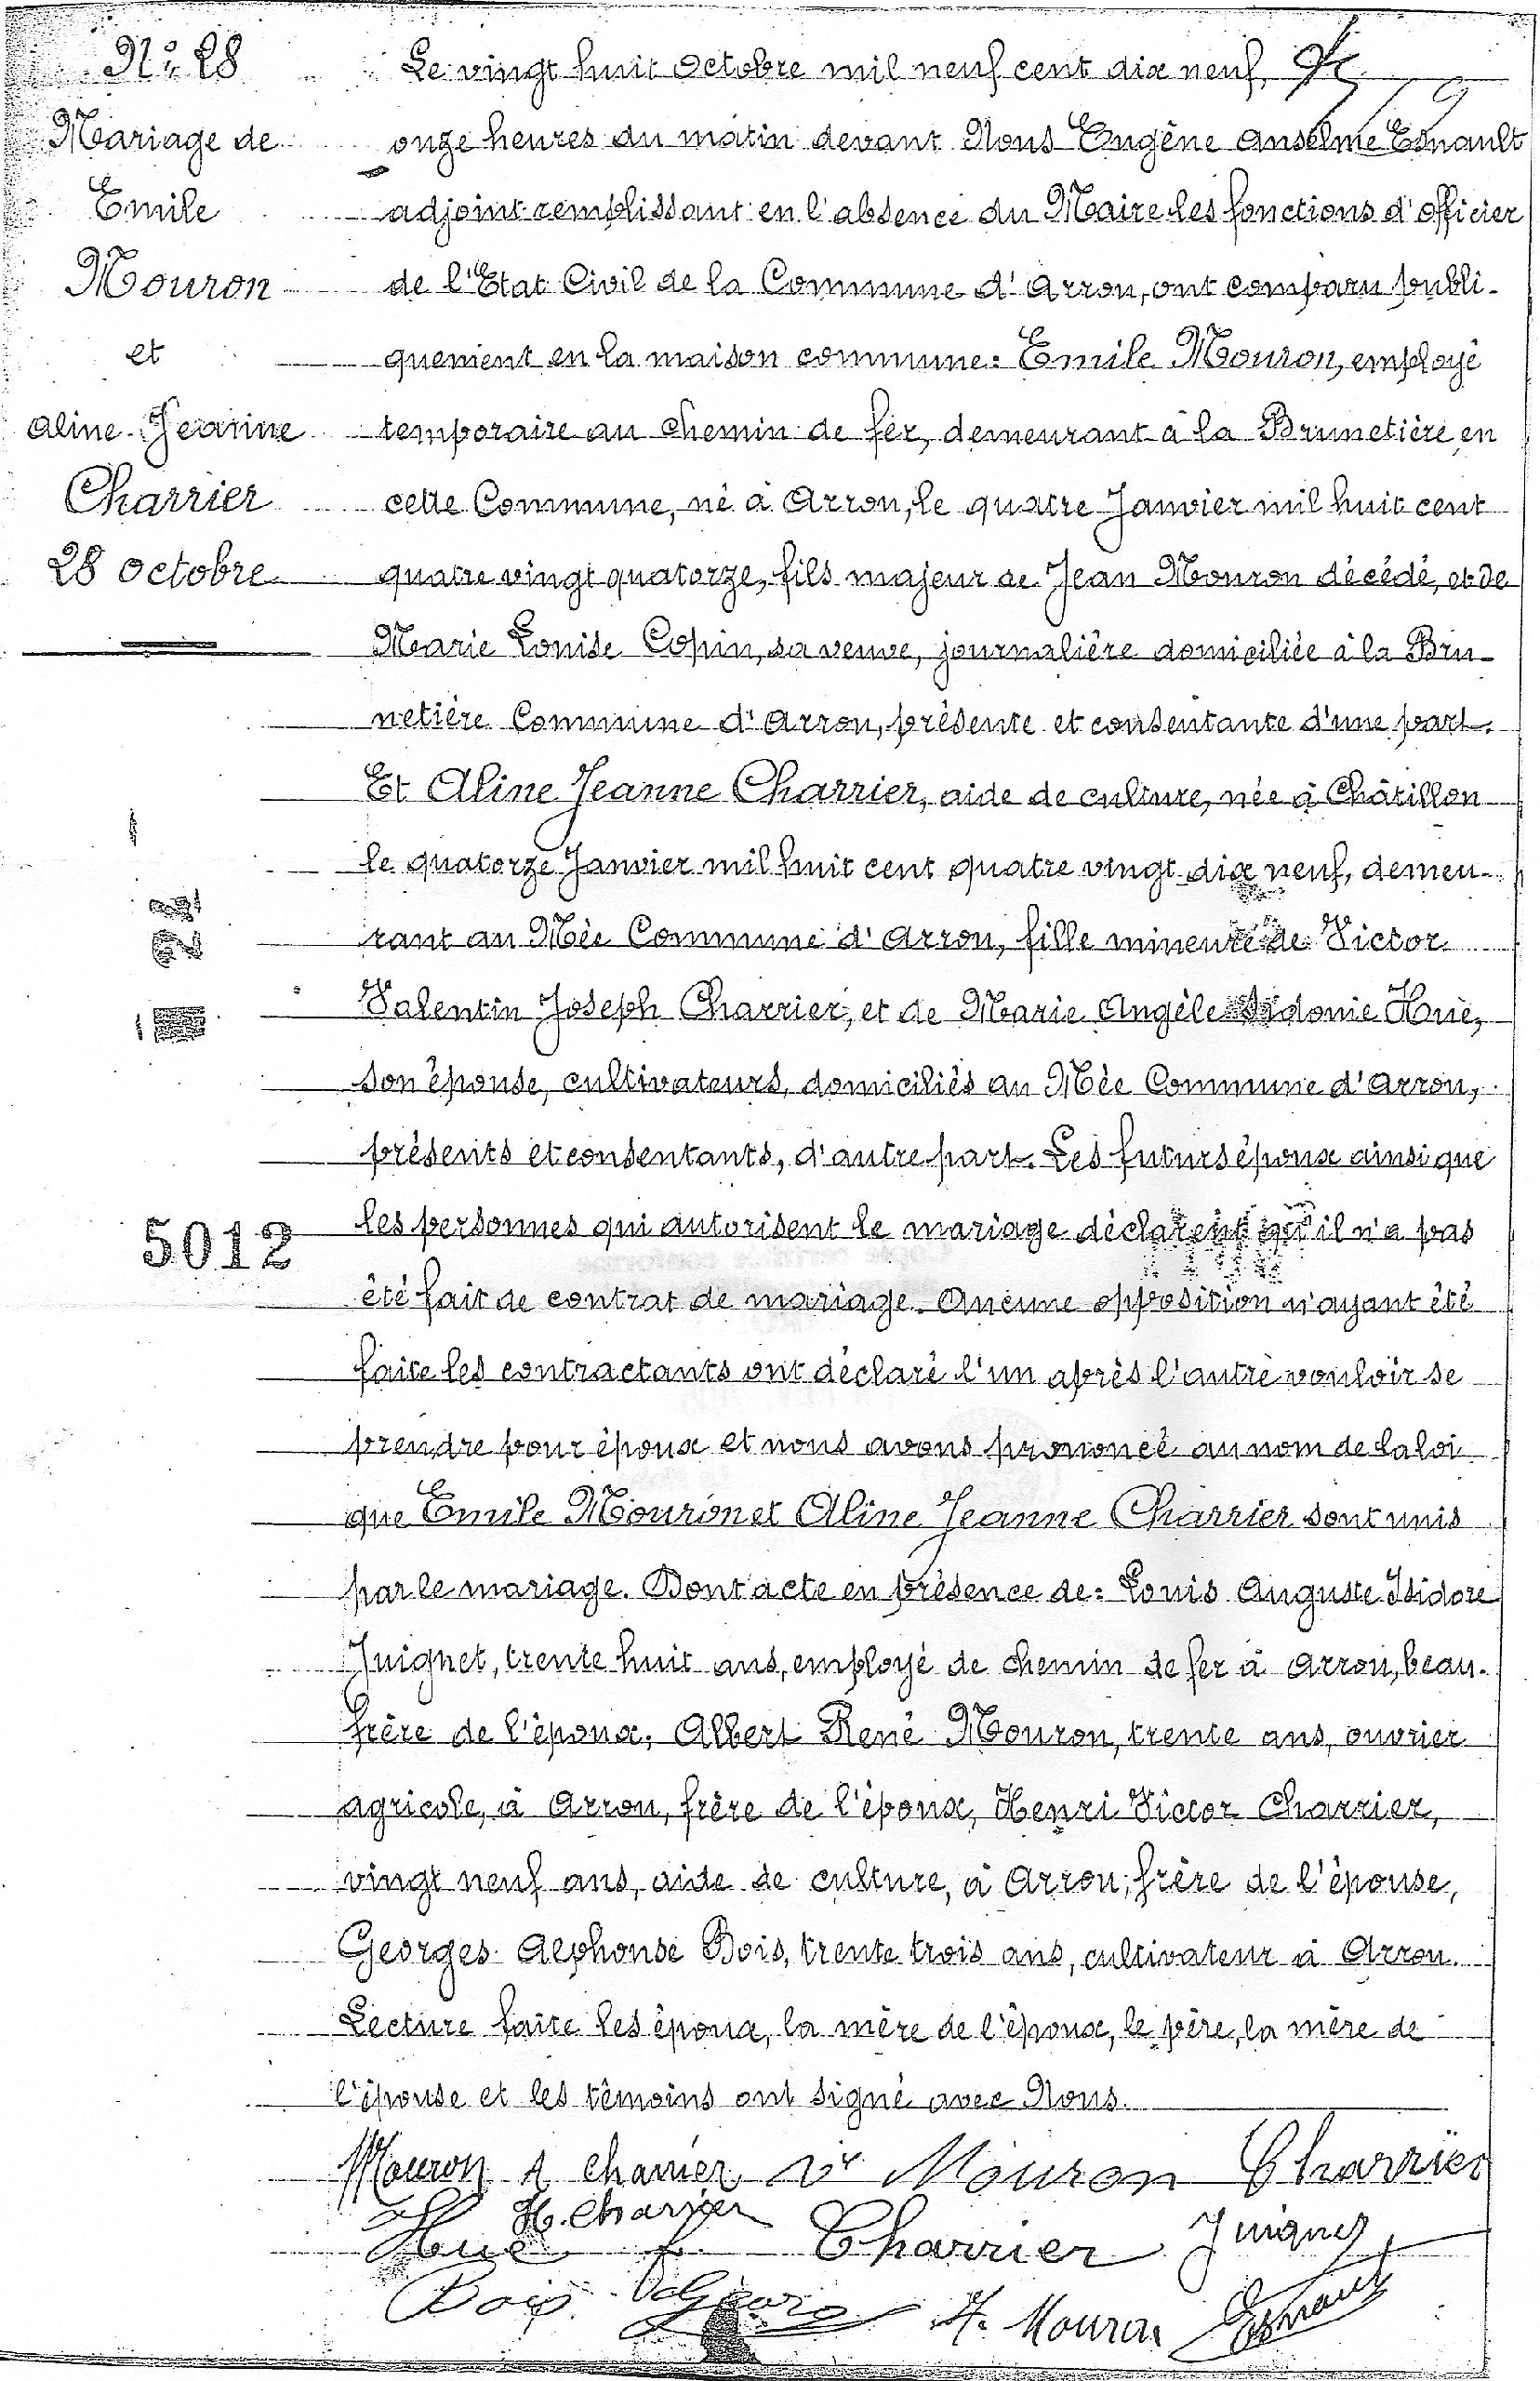 N° 28
Mariage de
Emile
Mouron
et
Aline Jeanne
Charrier
28 octobre
5012
Le vingt huit octobre mil neuf cent dix neuf,
onze heures du matin devant Nous Eugène Anselme Esnault
adjoint remplissant en l'absence du Maire les fonctions d'officier
de l'Etat Civil de la Commune d'Arrou, ont comparu publi-
quement en la maison commune: Emile Mouron, employé
temporaire au chemin de fer, demeurant à la Brunetière en
cette Commune, né à Arrou, le quatre Janvier mil huit cent
quatre vingt quatorze, fils majeur de Jean Mouron décédé, et de
Marie Louise Copin, sa veuve, journalière domiciliée à la Bru-
netière Commune d'Arrou, présente et consentante d'une part.
Et Aline Jeanne Charrier, aide de culture, née à Châtillon
le quatorze Janvier mil huit cent quatre vingt dix neuf, demeu-
rant au Mée Commune d'Arrou, fille mineure de Victor
Valentin Joseph Charrier, et de Marie Angèle Sidonie Hue,
son épouse, cultivateurs, domiciliés au Mée Commune d'Arrou,
présents et consentants, d'autre part. Les futurs époux ainsi que
les personnes qui autorisent le mariage déclarent qu'il n'a pas
été fait de contrat de mariage. Aucune opposition n'ayant été
faite les contractants ont déclaré l'un après l'autre vouloir se
prendre pour époux et nous avons prononcé au nom de la loi
que Emile Mouron et Aline Jeanne Charrier sont unis
par le mariage. Dont acte en présence de: Louis Auguste Isidore
Juignet, trente huit ans, employé de chemin de fer à Arrou, beau-
frère de l'époux, Albert René Mouron, trente ans, ouvrier
agricole, à Arrou, frère de l'époux, Henri Victor Charrier,
vingt neuf ans, aide de culture, à Arrou, frère de l'épouse,
Georges Alphonse Bois, trente trois ans, cultivateur à Arrou.
Lecture faite les époux, la mère de l'époux, le père, la mère de
l'épouse et les témoins ont signé avec Nous.
Mouron A Charrier Vve Mouron Charrier
Hue H. Charrier f. Charrier Juignet
Bois A. Mouron Esnault